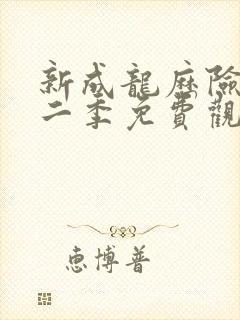 新成龍歷險
二季免費觀
惠博普